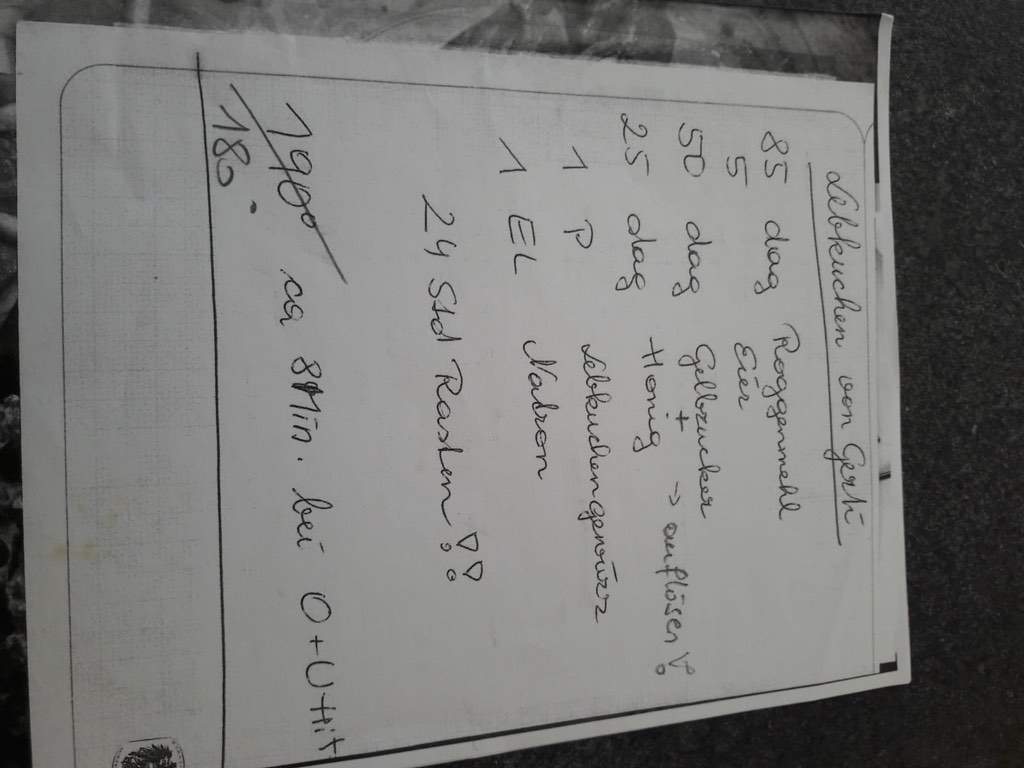 Lebkuchen von Gerti
85 dag Roggenmehl
5 Eier
50 dag Gelbzucker
+
25 dag Honig → auflösen!
1 P Lebkuchengewürz
1 EL Natron
24 Std Rasten!!
190° ca 8 Min. bei O+U Hit
180.